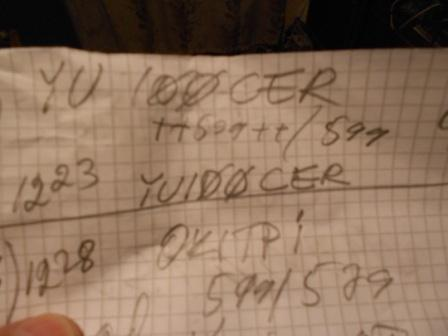 YU 100CER
++599++/599
1223 YU100CER
1228 OK1TPI
599/579